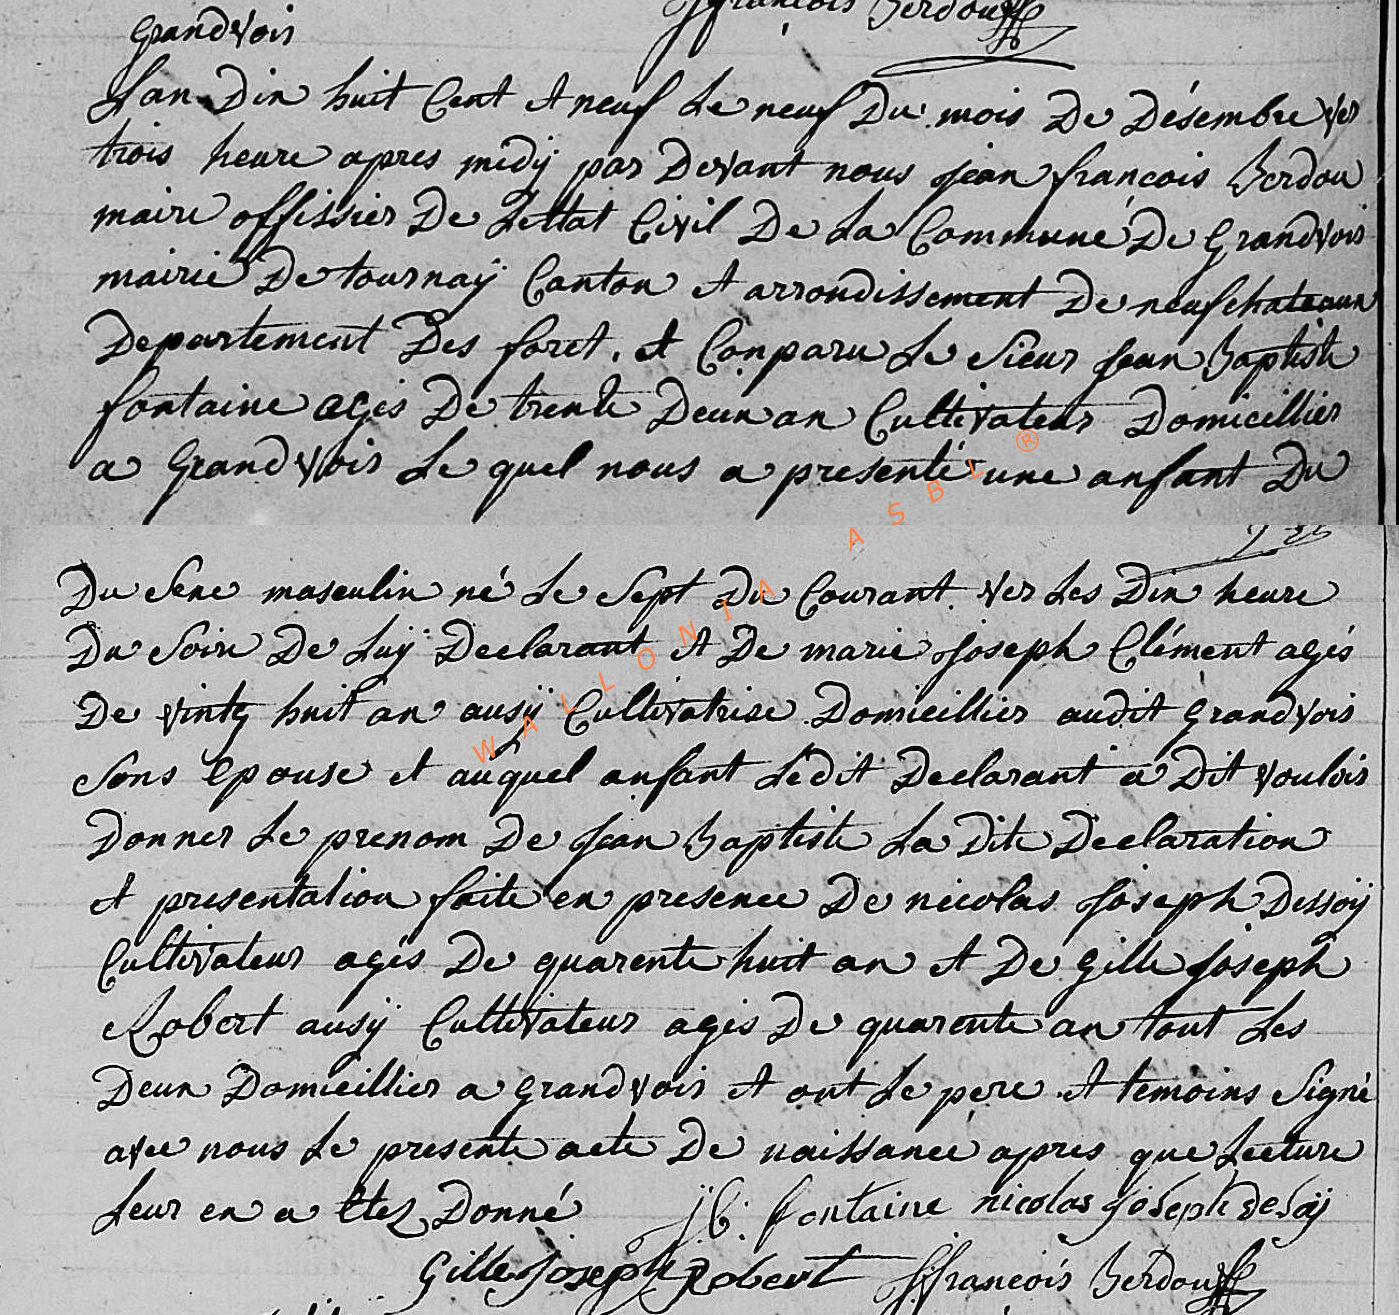 françois Verdou
grandvoir
Lan Dix huit Cent et neuf Le neuf Du mois De Désembre ver
trois heure apres medÿ par Devant nous jean françois Verdou
maire offissier De Lettat Civil De La Commune De grandvoir
mairie De tournaÿ Canton et arrondissement De neufchateaux
Departement Des foret. et Conparu Le Sieur jean Baptiste
fontaine agis De trente Deux an Cultivateur Domicillier
a grandvoir Le quel nous a presenté une anfant Du
Du Sexe masculin né Le Sept Du Courant ver Les Dix heure
Du Soire De Luÿ Declarant et De marie joseph Clément agés
De vintg huit an ausÿ Cultivatrise Domicillier audit grandvoir
Sons Epouse et auquel anfant Ledit Declarant a Dit vouloir
Donner Le prenom De jean Baptiste La Dite Declaration
et presentation faite en presence De nicolas joseph Dessoÿ
Cultivateur agés De quarente huit an et De gille joseph
Robert ausÿ Cultivateur agés De quarente an tout Les
Deux Domicillier a grandvoir et ont Le pere et temoins Signé
avec nous Le presente acte De naissance apres que Lecture
Leur en a Etez Donné j b: fontaine nicolas joseph desoÿ
Gille joseph Robert françois Verdou
WALLONIA ASBL ®